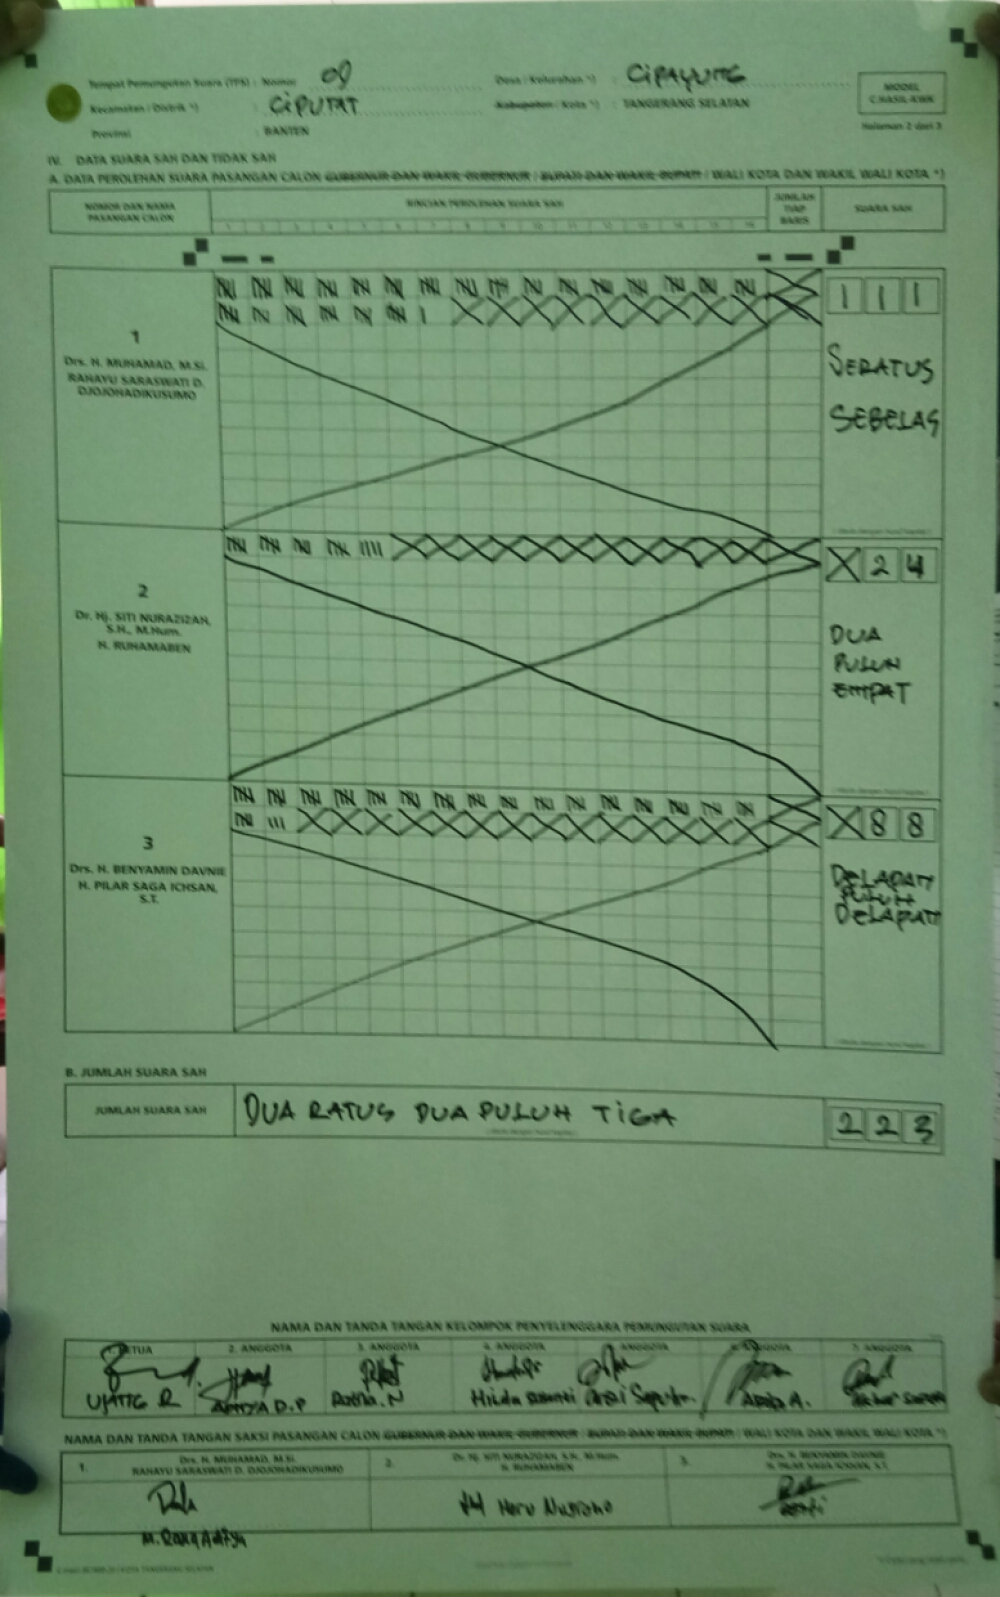 Tempat Pemungutan Suara (TPS) : Nomor : 09
Desa / Kelurahan *) : CIPAYUNG
Kecamatan / Distrik *) : CIPUTAT
Kabupaten / Kota *) : TANGERANG SELATAN
Provinsi : BANTEN
MODEL
C.HASIL-KWK
Halaman 2 dari 3
IV. DATA SUARA SAH DAN TIDAK SAH
A. DATA PEROLEHAN SUARA PASANGAN CALON GUBERNUR DAN WAKIL GUBERNUR / BUPATI DAN WAKIL BUPATI / WALI KOTA DAN WAKIL WALI KOTA *)
NOMOR DAN NAMA
PASANGAN CALON
RINCIAN PEROLEHAN SUARA SAH
1 2 3 4 5 6 7 8 9 10 11 12 13 14 15 16
JUMLAH
TIAP
BARIS
SUARA SAH
1
Drs. H. MUHAMAD, M.Si.
RAHAYU SARASWATI D.
DJOJOHADIKUSUMO
1 1 1
SERATUS
SEBELAS
2
Dr. Hj. SITI NURAZIZAH,
S.H., M.Hum.
H. RUHAMABEN
X 2 4
DUA
PULUH
EMPAT
3
Drs. H. BENYAMIN DAVNIE
H. PILAR SAGA ICHSAN,
S.T.
X 8 8
DELAPAN
PULUH
DELAPAN
B. JUMLAH SUARA SAH
JUMLAH SUARA SAH
DUA RATUS DUA PULUH TIGA
2 2 3
NAMA DAN TANDA TANGAN KELOMPOK PENYELENGGARA PEMUNGUTAN SUARA
KETUA
2. ANGGOTA
3. ANGGOTA
4. ANGGOTA
ANGGOTA
6. ANGGOTA
7. ANGGOTA
UJANG R
ADITYA D.P
Ratna. N
NAMA DAN TANDA TANGAN SAKSI PASANGAN CALON GUBERNUR DAN WAKIL GUBERNUR / BUPATI DAN WAKIL BUPATI / WALI KOTA DAN WAKIL WALI KOTA *)
1. Drs. H. MUHAMAD, M.Si.
RAHAYU SARASWATI D. DJOJOHADIKUSUMO
2. Dr. Hj. SITI NURAZIZAH, S.H., M.Hum.
H. RUHAMABEN
3. Drs. H. BENYAMIN DAVNIE
H. PILAR SAGA ICHSAN, S.T.
M. Rangga Aditya
Heru Nugroho